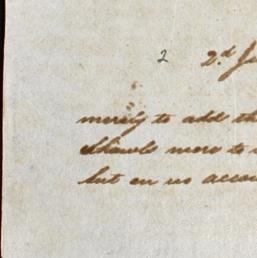 2 2.d Ju
merely to add th
Shawls more to
but on no accou